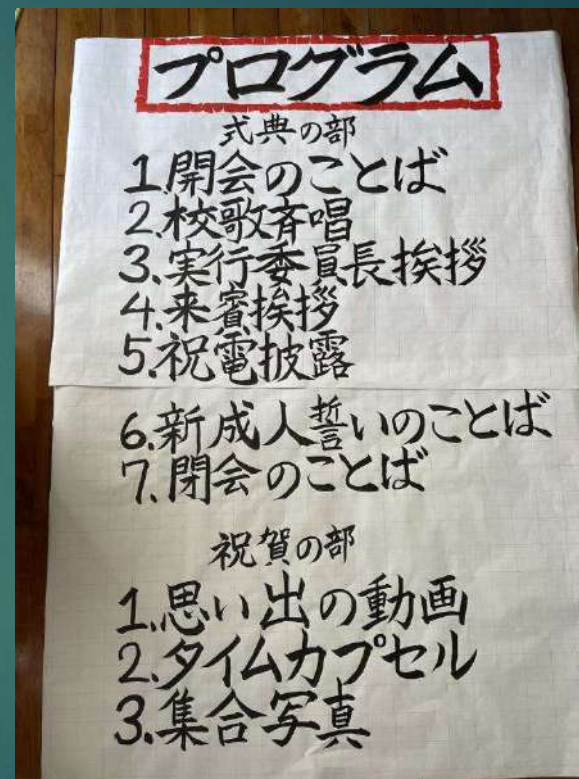 プログラム
式典の部
1.開会のことば
2.校歌斉唱
3.実行委員長挨拶
4.来賓挨拶
5.祝電披露
6.新成人誓いのことば
7.閉会のことば
祝賀の部
1.思い出の動画
2.タイムカプセル
3.集合写真